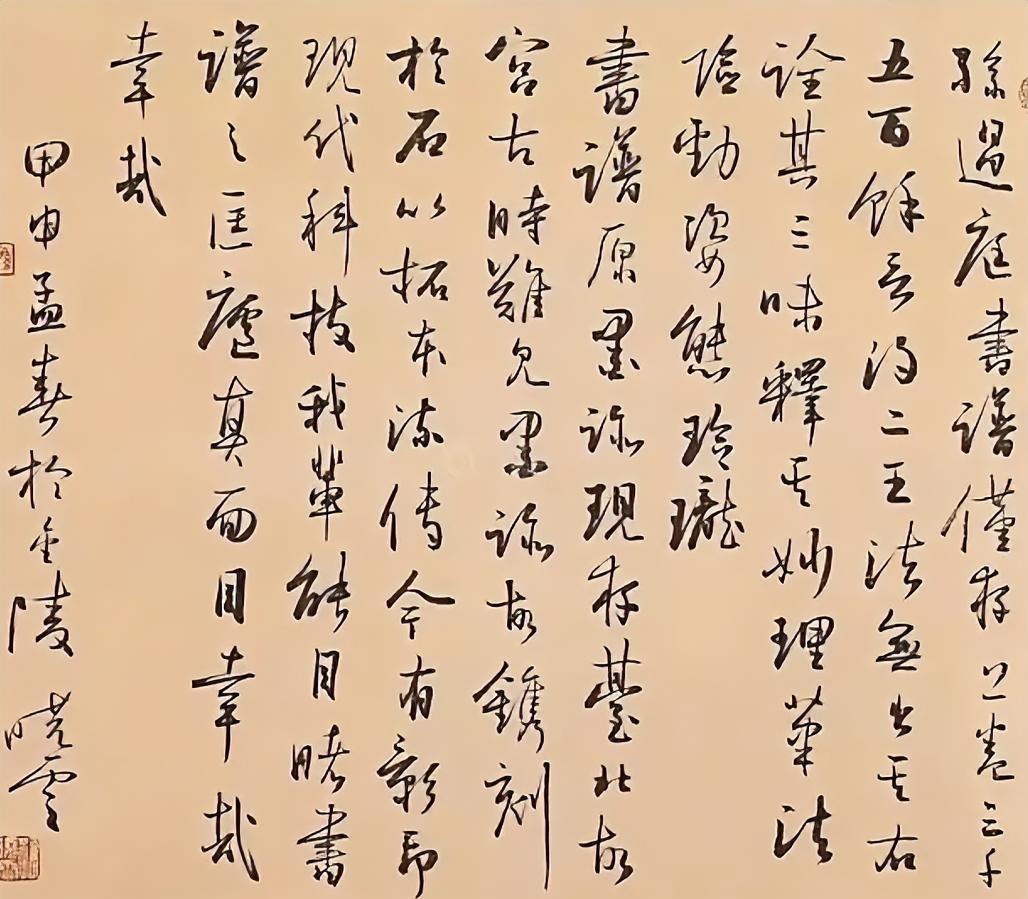 孫過庭書譜僅存上卷三千
五百餘言得二王法無出其右
詮其三味釋其妙理筆法
險勁姿態玲瓏
書譜原墨跡現存臺北故
宮古時難見墨跡故鐫刻
於石以拓本流傳今有彩印
現代科技我輩能目睹書
譜之匡廬真面目幸哉
幸哉
甲申孟春於金陵 曉雲